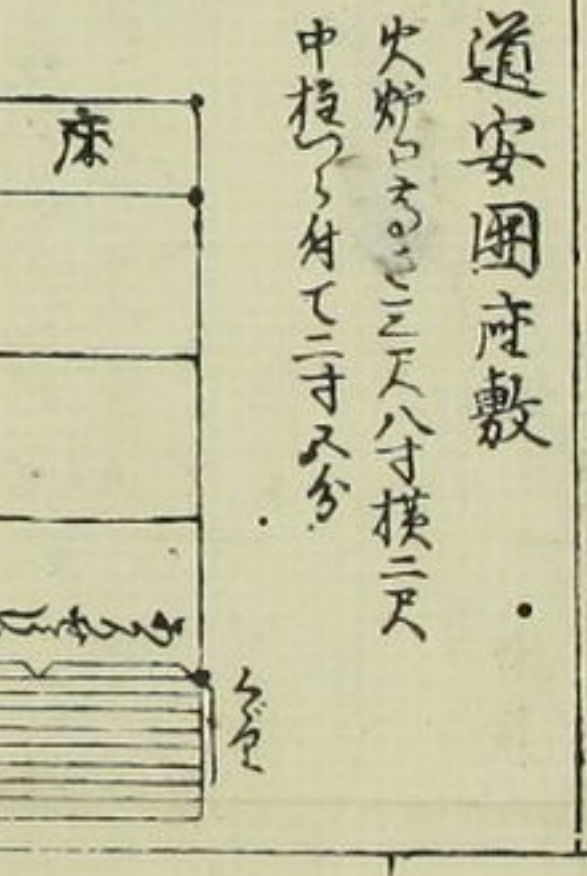 道安囲座敷
火炉口高さ三尺八寸横二尺
中柱つら付て二寸五分
床
くゞり